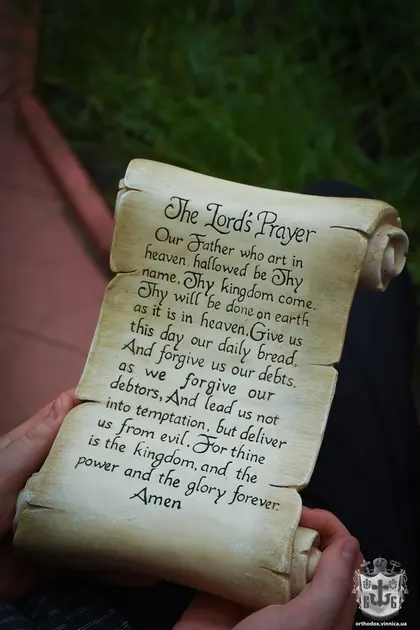 The Lord's Prayer
Our Father who art in
heaven, hallowed be Thy
name, Thy kingdom come.
Thy will be done on earth
as it is in heaven. Give us
this day our daily bread.
And forgive us our debts.
as we forgive our
debtors, And lead us not
into temptation, but deliver
us from evil. For thine
is the kingdom, and the
power and the glory forever.
Amen
orthodox.vinnica.ua